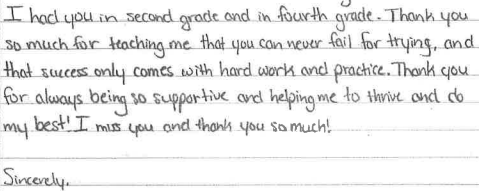 I had you in second grade and in fourth grade. Thank you
so much for teaching me that you can never fail for trying, and
that success only comes with hard work and practice. Thank you
for always being so supportive and helping me to thrive and do
my best! I miss you and thank you so much!
Sincerely,